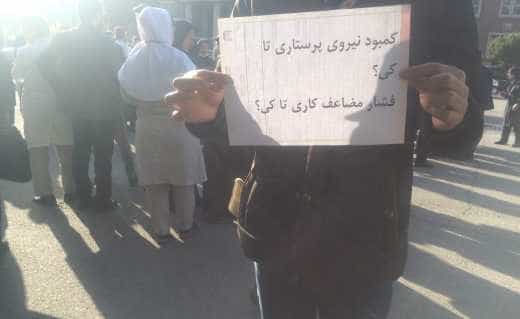 کمبود نیروی پرستاری تا
کی؟
فشار مضاعف کاری تا کی؟